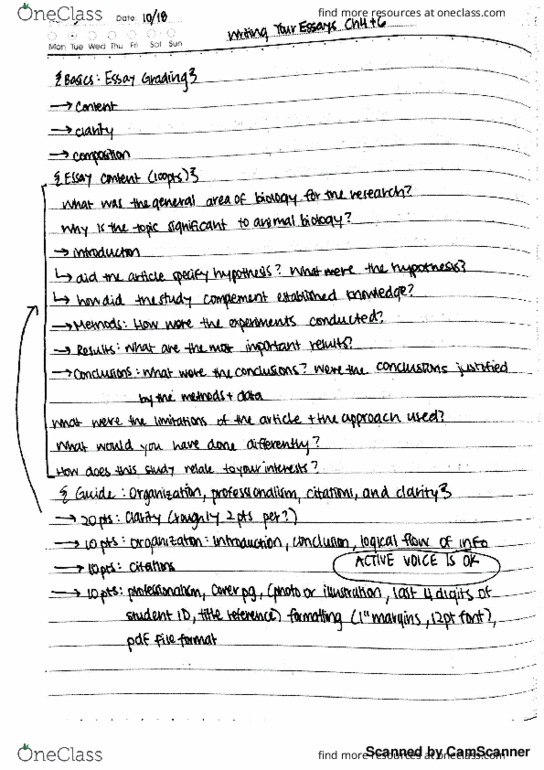 OneClass
find more resources at oneclass.com
Date: 10/18
Writing Your Essays Ch4+6
Mon Tue Wed Thu Fri Sat Sun
{Basics: Essay Grading}
→ content
→ clarity
→ composition
{Essay Content (100pts)}
What was the general area of biology for the research?
Why is the topic significant to animal biology?
→ introduction
↳ did the article specify hypothesis? What were the hypothesis?
↳ how did the study complement established knowledge?
→ Methods: How were the experiments conducted?
→ Results: What are the most important results?
→ Conclusions: What were the conclusions? Were the conclusions justified
by the methods + data
What were the limitations of the article + the approach used?
What would you have done differently?
How does this study relate to your interests?
{Guide: Organization, professionalism, citations, and clarity}
→ 20pts: Clarity (roughly 2pts per?)
→ 10pts: Organization: introduction, conclusion, logical flow of info
→ 10pts: Citations
ACTIVE VOICE IS OK
→ 10pts: professionalism, cover pg, (photo or illustration, last 4 digits of
student ID, title reference) formatting (1" margins, 12pt font),
pdf file format
OneClass
find more resources at oneclass.com
Scanned by CamScanner